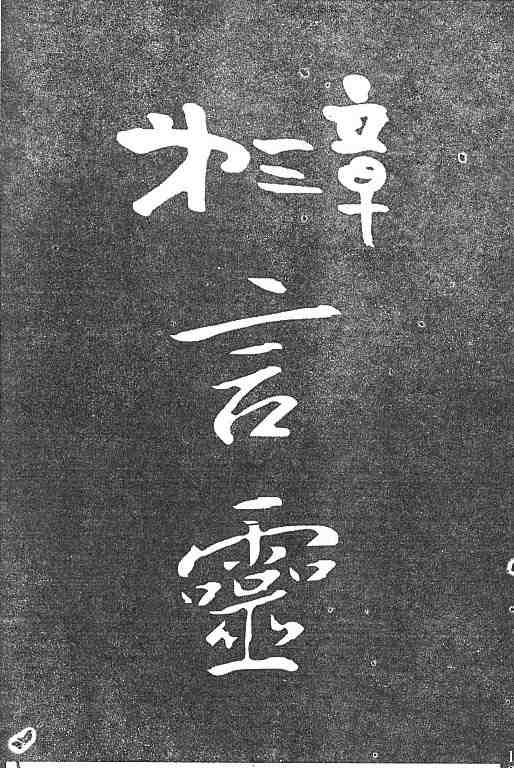 第三章
言
靈
1